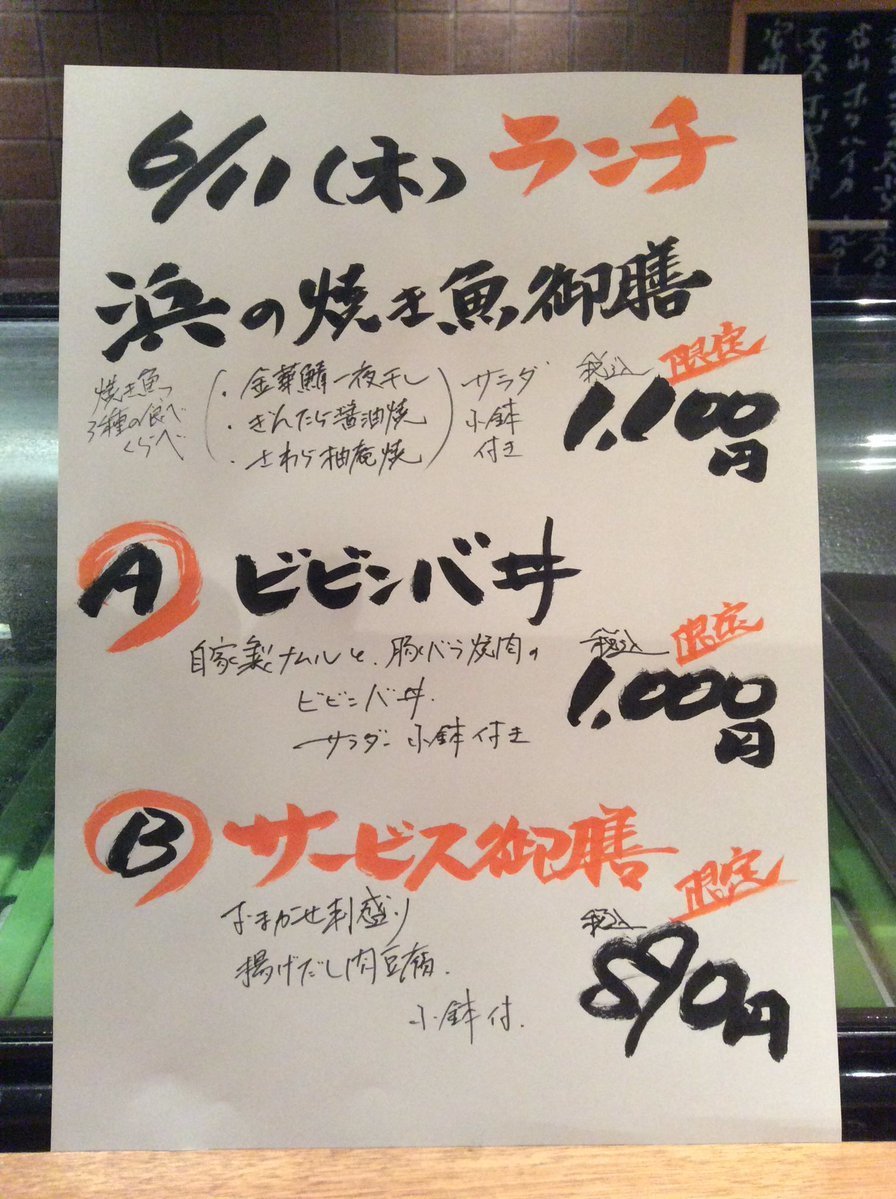 6/11(木)ランチ
浜の焼き魚御膳
焼き魚
3種の食べ
くらべ
・金華鯖一夜干し
・ぎんだら醤油焼
・さわら柚庵焼
サラダ
小鉢
付き
税込 限定
1,100円
A ビビンバ丼
自家製ナムルと、豚バラ焼肉の
ビビンバ丼.
サラダ 小鉢付き
税込 限定
1,000円
B サービス御膳
おまかせ刺盛り
揚げだし肉豆腐.
小鉢付.
税込 限定
890円